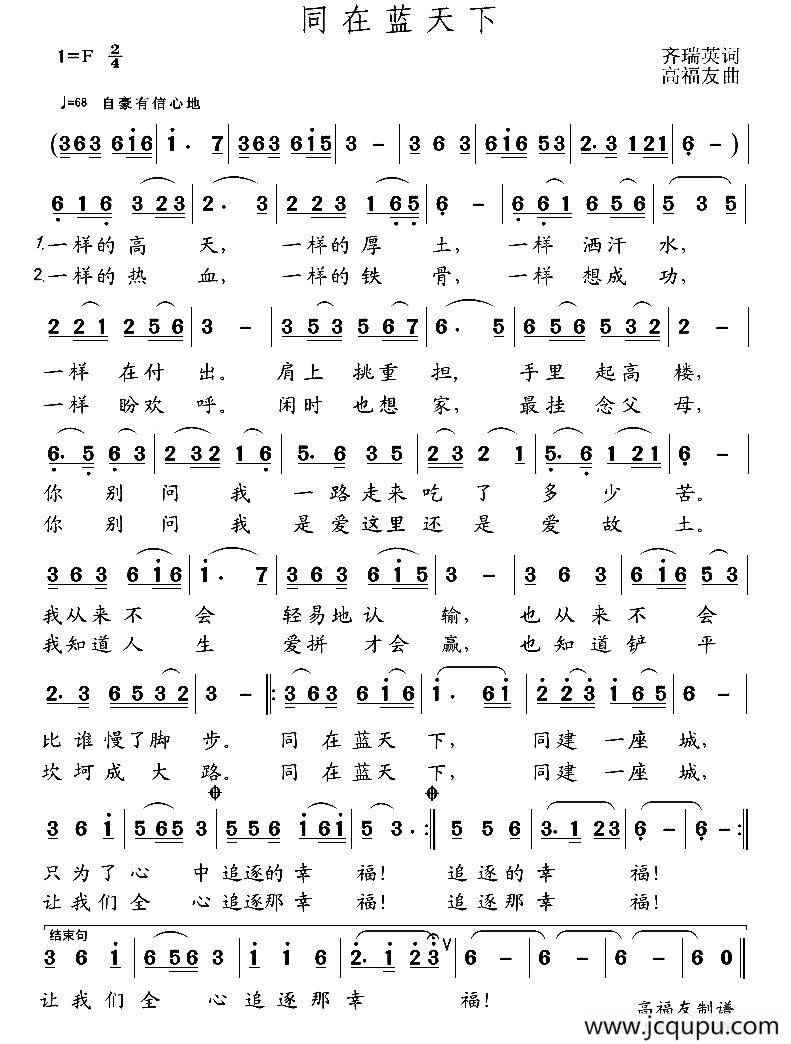 同在蓝天下
1=F 2/4
齐瑞英词
高福友曲
♩=68 自豪有信心地
(363 6i6 | i. 7 | 363 6i5 | 3 - | 3 6 3 | 6i6 53 | 2. 3 121 | 6 - )
6 1 6 3 23 | 2. 3 | 2 2 3 1 65 | 6 - | 6 6 1 6 5 6 | 5 35
1.一样的高 天, 一样的厚 土, 一样 洒汗 水,
2.一样的热 血, 一样的铁 骨, 一样 想成 功,
2 2 1 2 5 6 | 3 - | 3 5 3 5 6 7 | 6. 5 | 6 5 6 5 3 2 | 2 -
一样 在付 出。 肩上 挑重 担, 手里 起高 楼,
一样 盼欢 呼。 闲时 也想 家, 最挂 念父 母,
6. 5 6 3 | 2 3 2 1 6 | 5. 6 3 5 | 2 2 3 1 | 5. 6 1 2 1 | 6 -
你 别 问 我 一路走来吃 了 多 少 苦。
你 别 问 我 是爱这里还 是 爱 故 土。
3 6 3 6 i 6 | i. 7 | 3 6 3 6 i 5 | 3 - | 3 6 3 | 6 i 6 5 3
我从来不 会 轻易地认 输, 也从来不 会
我知道人 生 爱拼 才会 赢, 也知道铲 平
2. 3 6 5 3 2 | 3 - ‖: 3 6 3 6 i 6 | i. 6 i | 2 2 3 i 6 5 | 6 -
比谁慢了脚 步。 同 在蓝天 下, 同建 一座 城,
坎坷成大 路。 同 在蓝天 下, 同建 一座 城,
3 6 i | 5 6 5 3 | 5 5 6 i 6 i | 5 3. :‖ 5 5 6 | 3. 1 2 3 | 6 - | 6 - :‖
只为了心 中追逐的幸 福! 追逐的幸 福!
让我们全 心追逐那幸 福! 追逐那幸 福!
结束句
3 6 i | 6 5 6 3 | i i 6 | 2. i 2 3 | 6 - | 6 - | 6 - | 6 0
让我们全 心追逐那幸 福!
高福友制谱
www.jcqupu.com